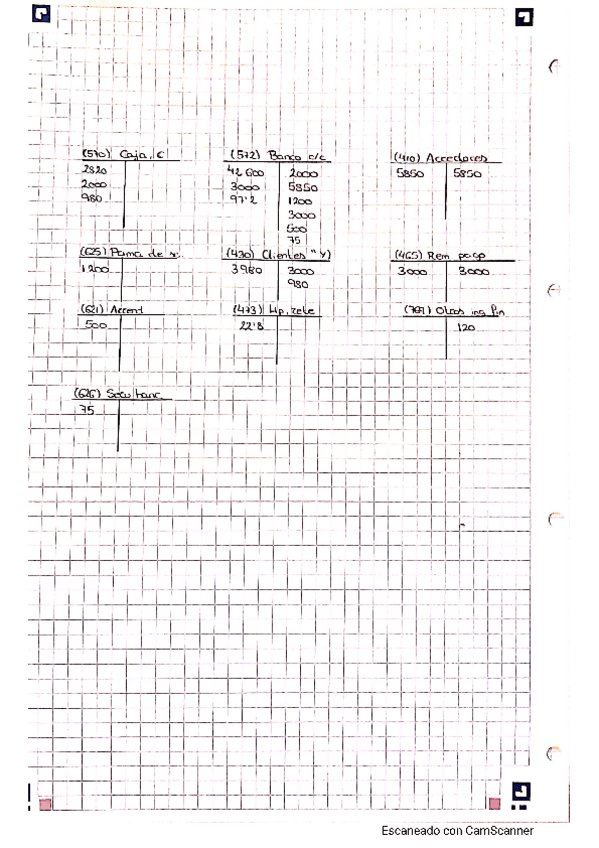 (570) Caja, €
2820
2000
980
(572) Banco c/c
42 600 2000
3000 5850
97'2 1200
3000
500
75
(410) Acreedores
5850 5850
(625) Prima de s.
1200
(430) Clientes "Y)
3980 3000
980
(465) Rem. pago
3000 3000
(621) Arrend
500
(473) Hp, rete
22'8
(769) Otros ing fin
120
(626) Serv banc
75
Escaneado con CamScanner